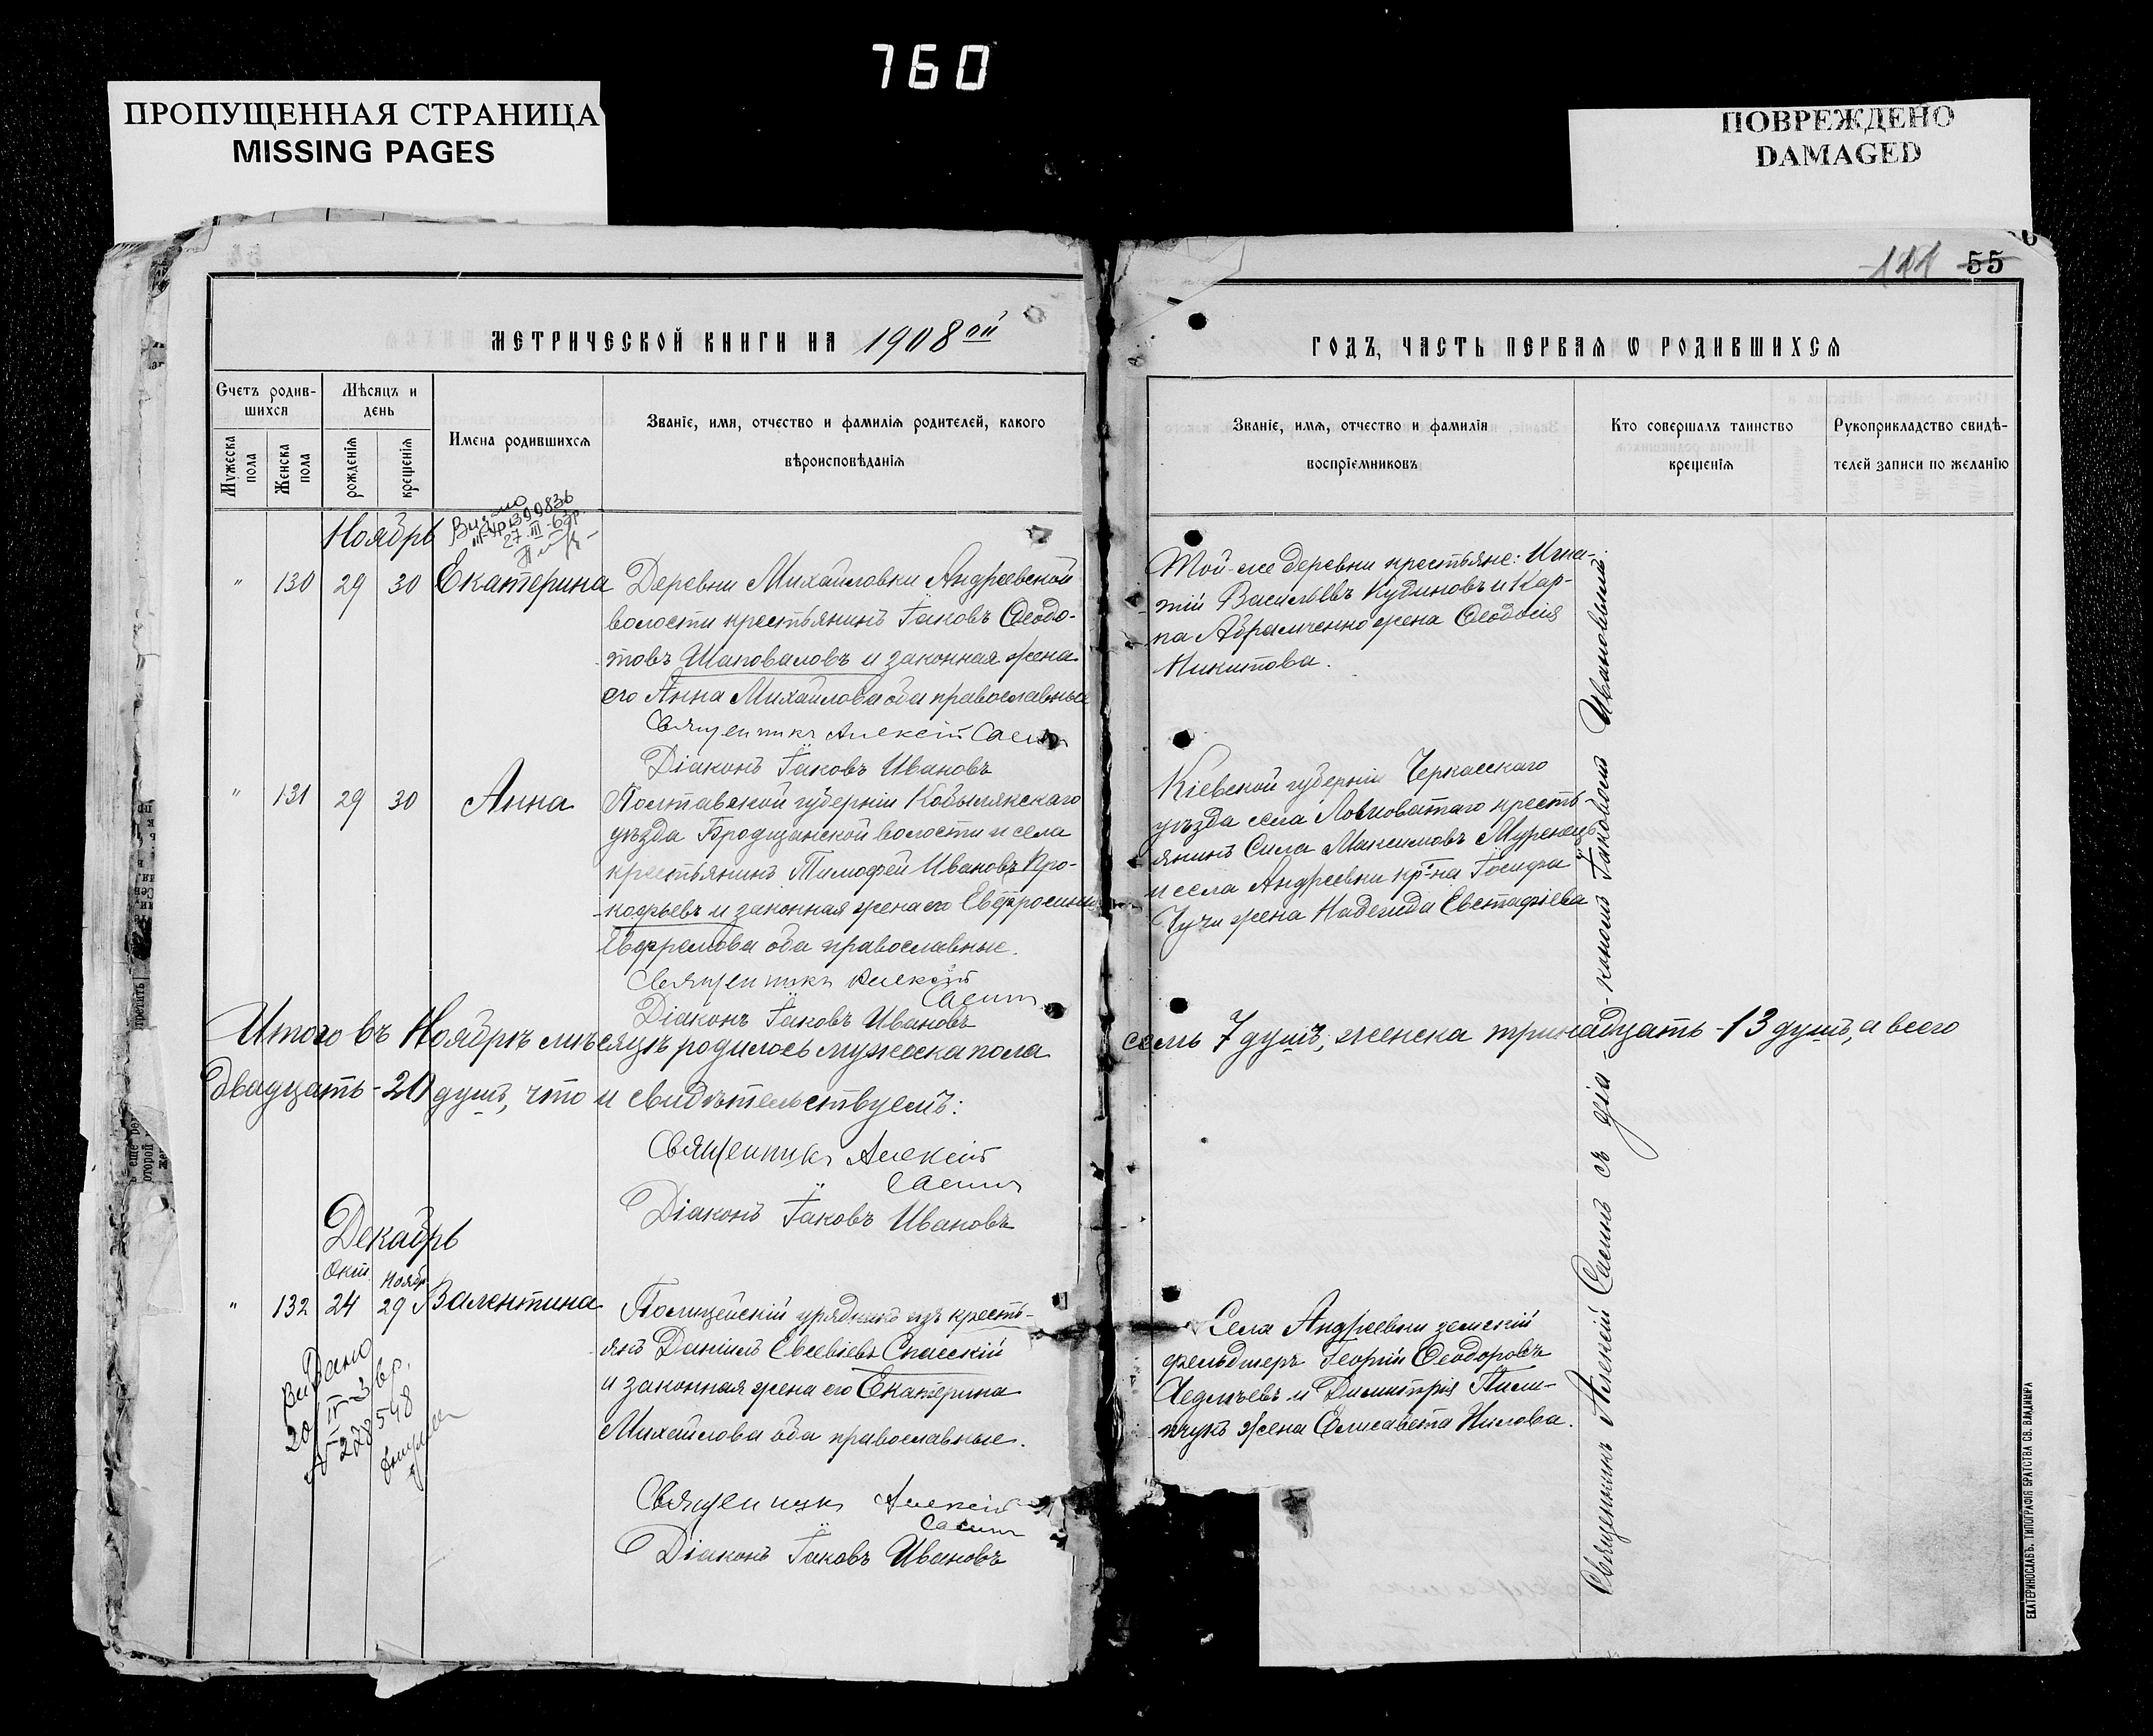 760
ПРОПУЩЕННАЯ СТРАНИЦА
MISSING PAGES
ПОВРЕЖДЕНО
DAMAGED
111 55
МЕТРИЧЕСКОЙ КНИГИ НА 1908 ой
Счетъ родив-
шихся
Мѣсяцъ и
день
Мужеска
пола
Женска
пола
рожденія
крещенія
Имена родившихся
Званіе, имя, отчество и фамилія родителей, какого
вѣроисповѣданія
Ноябрь
399836
27-III-63р.
" 130 29 30 Екатерина
Деревни Михайловки Андреевской
волости крестьянинъ Іаковъ Ѳеодо-
товъ Шаповаловъ и законная жена
его Анна Михайлова оба православные
Священникъ Алексій Саенин
Діаконъ Іаковъ Ивановъ
" 131 29 30 Анна
Полтавской губерніи Кобылякскаго
уѣзда Бродщанской волости и села
крестьянинъ Тимофей Ивановъ Про-
кофьевъ и законная жена его Евфросинія
Ефремова оба православные.
Священникъ Алексій
Діаконъ Іаковъ Ивановъ
Итого въ Ноябрѣ мѣсяцѣ родилось мужеска пола
двадцать - 20 душъ, что и свидѣтельствуемъ:
Священникъ Алексій
Діаконъ Іаковъ Ивановъ
Декабрь
Окт. Ноябр.
" 132 24 29 Валентина
Видано
20/IV-3 вр.
№ 228548
Полицейскій урядникъ изъ кресть-
янъ Даніилъ Евсевіевъ Спасскій
и законная жена его Екатерина
Михайлова оба православные.
Священникъ Алексій
Діаконъ Іаковъ Ивановъ
ГОДЪ, ЧАСТЬ ПЕРВАЯ Ѡ РОДИВШИХСЯ
Званіе, имя, отчество и фамилія
воспріемниковъ
Кто совершалъ таинство
крещенія
Рукоприкладство свидѣ-
телей записи по желанію
Той-же деревни крестьяне: Игна-
тій Васильевъ Кудиновъ и Кар-
па Абрамченко жена Ѳеодосія
Никитова.
Кіевской губерніи Черкасскаго
уѣзда села Ловноватаго кресть-
янинъ Сила Максимовъ Муренецъ
и села Андреевки кр-на Іосифа
жена Надежда Евстафіева
семь 7 душъ; женска тринадцать - 13 душъ, а всего
Села Андреевки земскій
фельдшеръ Георгій Ѳеодоровъ
и Димитрія Пили-
пчукъ жена Елисавета Нилова.
Священникъ Алексій съ діа-
кономъ Іаковомъ Ивановымъ.
ЕКАТЕРИНОСЛАВЪ. ТИПОГРАФІЯ БРАТСТВА СВ. ВЛАДИМІРА